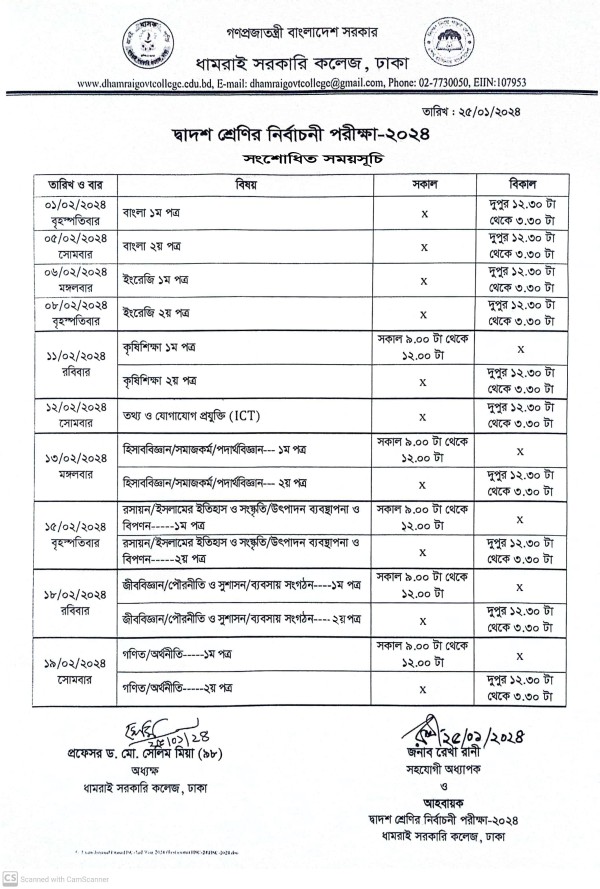 গণপ্রজাতন্ত্রী বাংলাদেশ সরকার
ধামরাই সরকারি কলেজ, ঢাকা
www.dhamraigovtcollege.edu.bd, E-mail: dhamraigovtcollege@gmail.com, Phone: 02-7730050, EIIN:107953
তারিখ : ২৫/০১/২০২৪
দ্বাদশ শ্রেণির নির্বাচনী পরীক্ষা-২০২৪
সংশোধিত সময়সূচি
তারিখ ও বার বিষয় সকাল বিকাল
০১/০২/২০২৪ বাংলা ১ম পত্র x দুপুর ১২.৩০ টা
বৃহস্পতিবার থেকে ৩.৩০ টা
০৫/০২/২০২৪ বাংলা ২য় পত্র x দুপুর ১২.৩০ টা
সোমবার থেকে ৩.৩০ টা
০৬/০২/২০২৪ ইংরেজি ১ম পত্র x দুপুর ১২.৩০ টা
মঙ্গলবার থেকে ৩.৩০ টা
০৮/০২/২০২৪ ইংরেজি ২য় পত্র x দুপুর ১২.৩০ টা
বৃহস্পতিবার থেকে ৩.৩০ টা
১১/০২/২০২৪ কৃষিশিক্ষা ১ম পত্র সকাল ৯.০০ টা থেকে x
রবিবার ১২.০০ টা
কৃষিশিক্ষা ২য় পত্র x দুপুর ১২.৩০ টা
থেকে ৩.৩০ টা
১২/০২/২০২৪ তথ্য ও যোগাযোগ প্রযুক্তি (ICT) x দুপুর ১২.৩০ টা
সোমবার থেকে ৩.৩০ টা
১৩/০২/২০২৪ হিসাববিজ্ঞান/সমাজকর্ম/পদার্থবিজ্ঞান--- ১ম পত্র সকাল ৯.০০ টা থেকে x
মঙ্গলবার ১২.০০ টা
হিসাববিজ্ঞান/সমাজকর্ম/পদার্থবিজ্ঞান--- ২য় পত্র x দুপুর ১২.৩০ টা
থেকে ৩.৩০ টা
১৫/০২/২০২৪ রসায়ন/ইসলামের ইতিহাস ও সংস্কৃতি/উৎপাদন ব্যবস্থাপনা ও সকাল ৯.০০ টা থেকে x
বৃহস্পতিবার বিপণন-----১ম পত্র ১২.০০ টা
রসায়ন/ইসলামের ইতিহাস ও সংস্কৃতি/উৎপাদন ব্যবস্থাপনা ও x দুপুর ১২.৩০ টা
বিপণন-----২য় পত্র থেকে ৩.৩০ টা
১৮/০২/২০২৪ জীববিজ্ঞান/পৌরনীতি ও সুশাসন/ব্যবসায় সংগঠন----১ম পত্র সকাল ৯.০০ টা থেকে x
রবিবার ১২.০০ টা
জীববিজ্ঞান/পৌরনীতি ও সুশাসন/ব্যবসায় সংগঠন---- ২য় পত্র x দুপুর ১২.৩০ টা
থেকে ৩.৩০ টা
১৯/০২/২০২৪ গণিত/অর্থনীতি-----১ম পত্র সকাল ৯.০০ টা থেকে x
সোমবার ১২.০০ টা
গণিত/অর্থনীতি-----২য় পত্র x দুপুর ১২.৩০ টা
থেকে ৩.৩০ টা
২৫/০১/২৪
প্রফেসর ড. মো. সেলিম মিয়া (৯৮)
অধ্যক্ষ
ধামরাই সরকারি কলেজ, ঢাকা
২৫/০১/২০২৪
জনাব রেখা রানী
সহযোগী অধ্যাপক
ও
আহবায়ক
দ্বাদশ শ্রেণির নির্বাচনী পরীক্ষা-২০২৪
ধামরাই সরকারি কলেজ, ঢাকা
CS Scanned with CamScanner